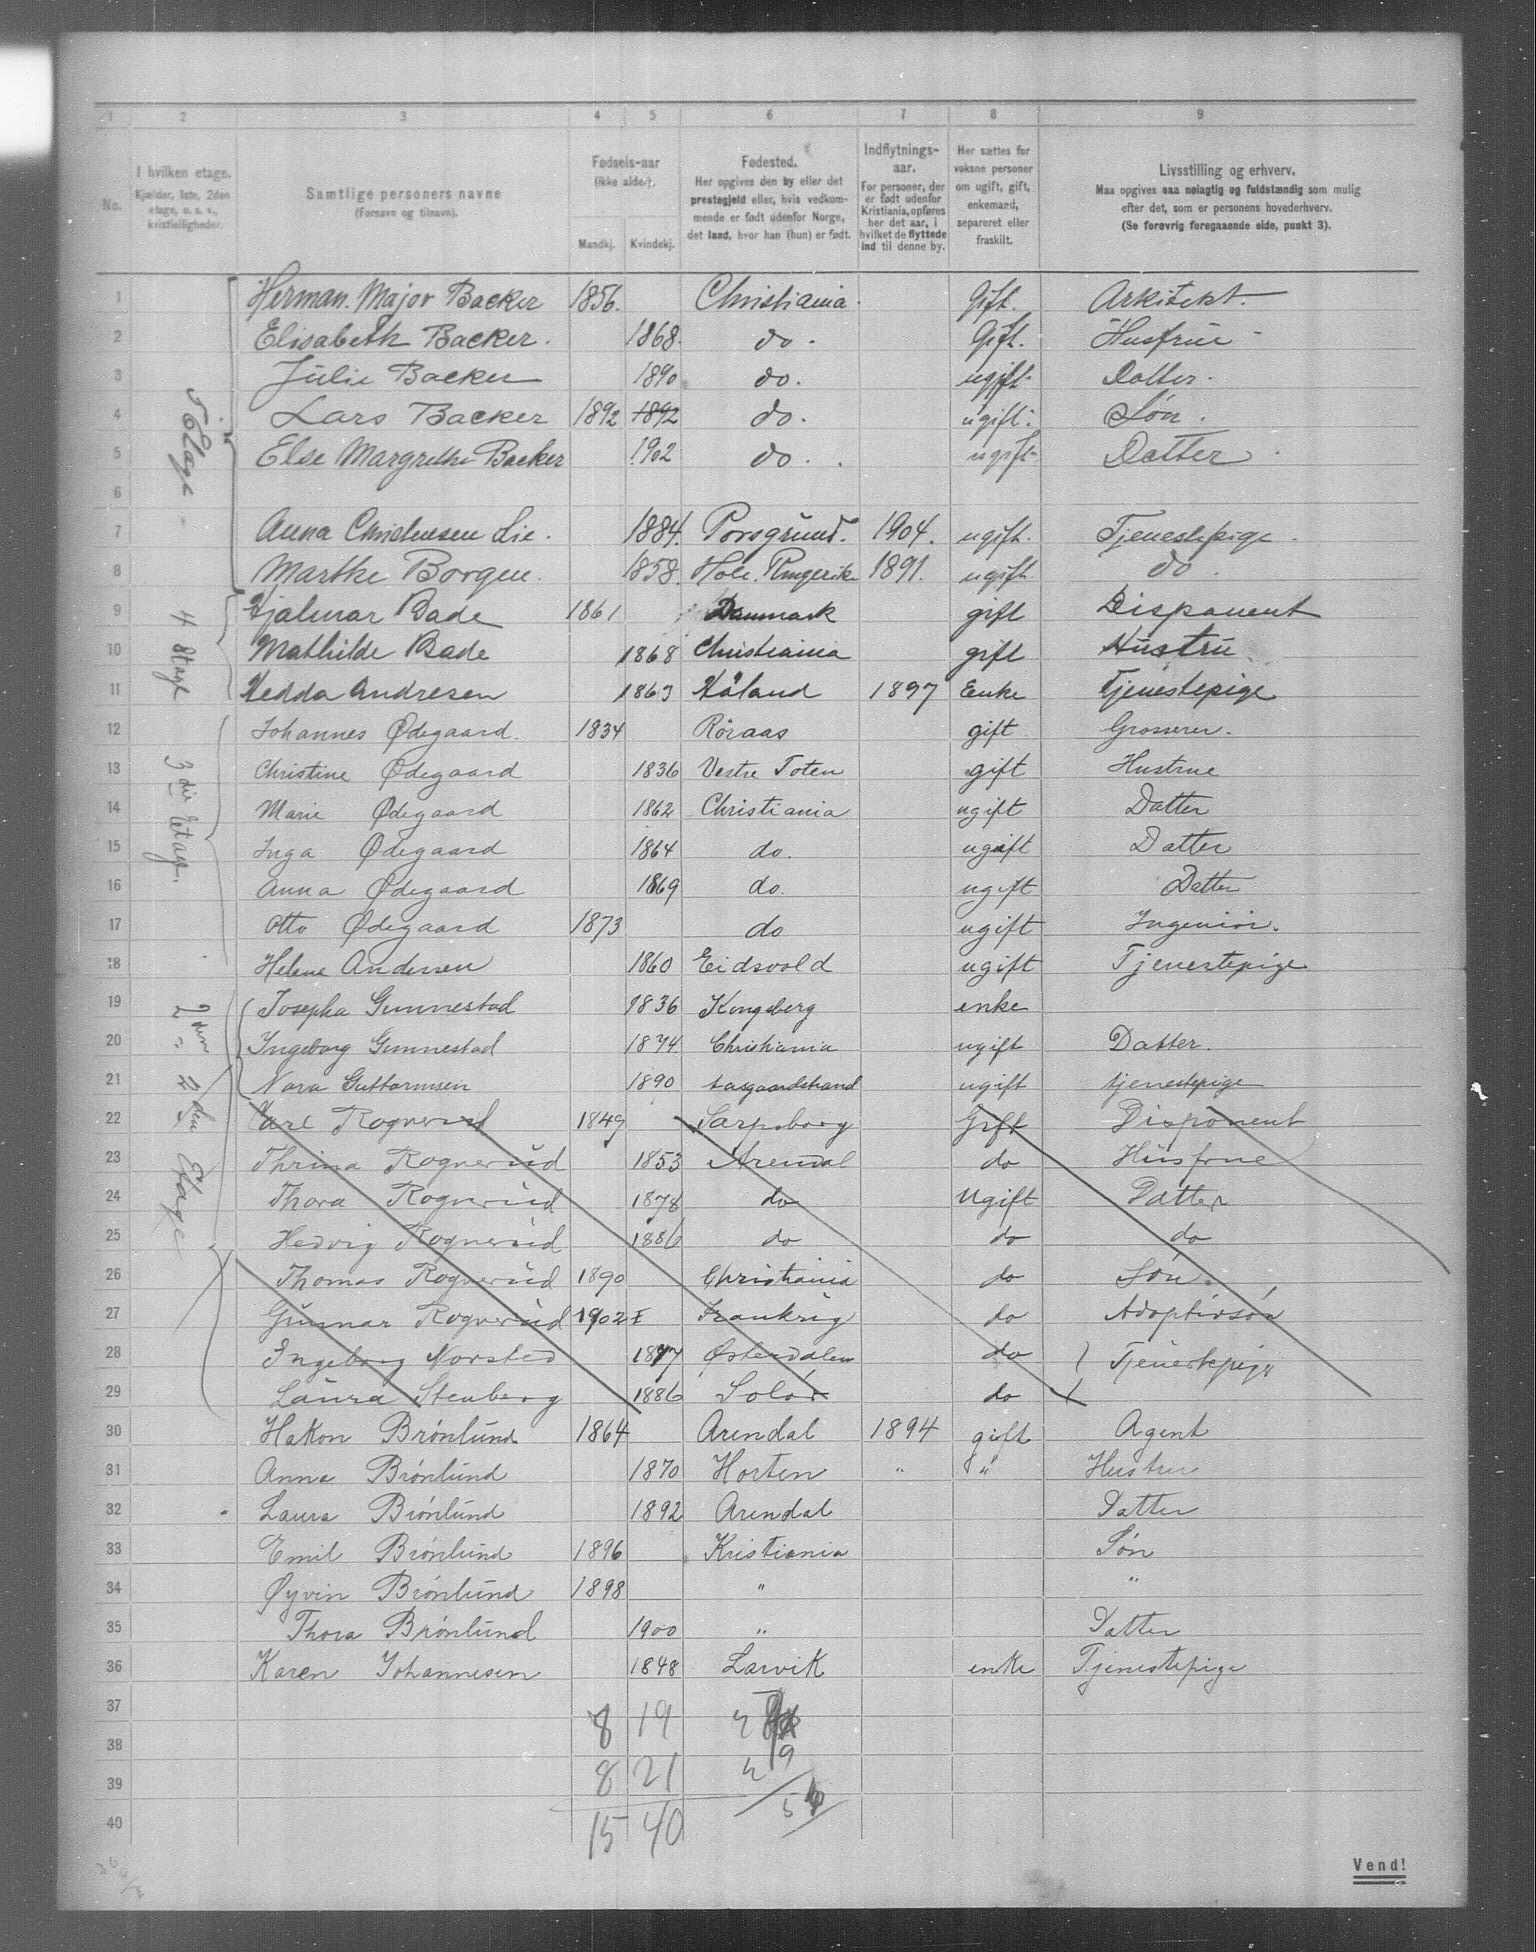 1 2 3 4 5 6 7 8 9
No.
I hvilken etage.
Kjælder, 1ste, 2den etage, o. s. v., kvistleiligheder.
Samtlige personers navne
(Fornavn og tilnavn).
Fødsels-aar
(ikke alder).
Mandkj. Kvindekj.
Fødested.
Her opgives den by eller det prestegjeld eller, hvis vedkommende er født udenfor Norge, det land, hvor han (hun) er født.
Indflytnings-aar.
For personer, der er født udenfor Kristiania, opføres her det aar, i hvilket de flyttede ind til denne by.
Her sættes for voksne personer om ugift, gift, enkemand, separeret eller fraskilt.
Livsstilling og erhverv.
Maa opgives saa nøiagtig og fuldstændig som mulig efter det, som er personens hovederhverv.
(Se forøvrig foregaaende side, punkt 3).
5 Etage
1 Herman Major Backer 1856. Christiania. Gift. Arkitekt.
2 Elisabeth Backer. 1868. do. Gift. Husfrue
3 Julie Backer 1890 do. ugift. Datter.
4 Lars Backer 1892 1892 do. ugift. Søn.
5 Else Margrethe Backer 1902 do. ugift. Datter
6
7 Anna Christensen Lie. 1884. Porsgrund. 1904. ugift. Tjenestepige.
8 Marthe Borgen. 1858. Hole. Ringerike 1891. ugift. do
4 Etage
9 Hjalmar Bade 1861 Danmark gift Disponent
10 Mathilde Bade 1868 Christiania gift Hustru
11 Hedda Andresen 1863 Håland 1897 Enke Tjenestepige
3die Etage.
12 Johannes Ødegaard. 1834 Röraas gift Grosserer.
13 Christine Ødegaard 1836 Vestre Toten gift Hustrue
14 Marie Ødegaard 1862 Christiania ugift Datter
15 Inga Ødegaard 1864 do. ugift Datter
16 Anna Ødegaard 1869 do. ugift Datter
17 Otto Ødegaard 1873 do ugift Ingeniör.
18 Helene Andersen 1860 Eidsvold ugift Tjenestepige
2den
19 Josepha Gunnestad 1836 Kongsberg enke
20 Ingeborg Gunnestad 1874 Christiania ugift Datter.
21 Nora Guttormsen 1890 Aasgaardstrand ugift tjenestepige
2den Etage
22 Carl Rognerud 1849 Sarpsborg Gift Disponent
23 Thrina Rognerud 1853 Arendal do Husfrue
24 Thora Rognerud 1878 do Ugift Datter
25 Hedvig Rognerud 1886 do do do
26 Thomas Rognerud 1890 Christiania do Søn.
27 Gunnar Rognerud 1902 Frankrig do Adoptivsøn
28 Ingeborg Norsted 1877 Østerdalen do Tjenestepige
29 Laura Stenberg 1886 Solör do
30 Hakon Brönlund 1864 Arendal 1894 gift Agent
31 Anna Brönlund 1870 Horten " " Hustru
32 Laura Brönlund 1892 Arendal Datter
33 Emil Brönlund 1896 Kristiania Søn
34 Øyvin Brönlund 1898 " "
35 Thora Brönlund 1900 " Datter
36 Karen Johannesen 1848 Larvik enke Tjenestepige
37 8 19
38
39 8 21
40 15 40
Vend!